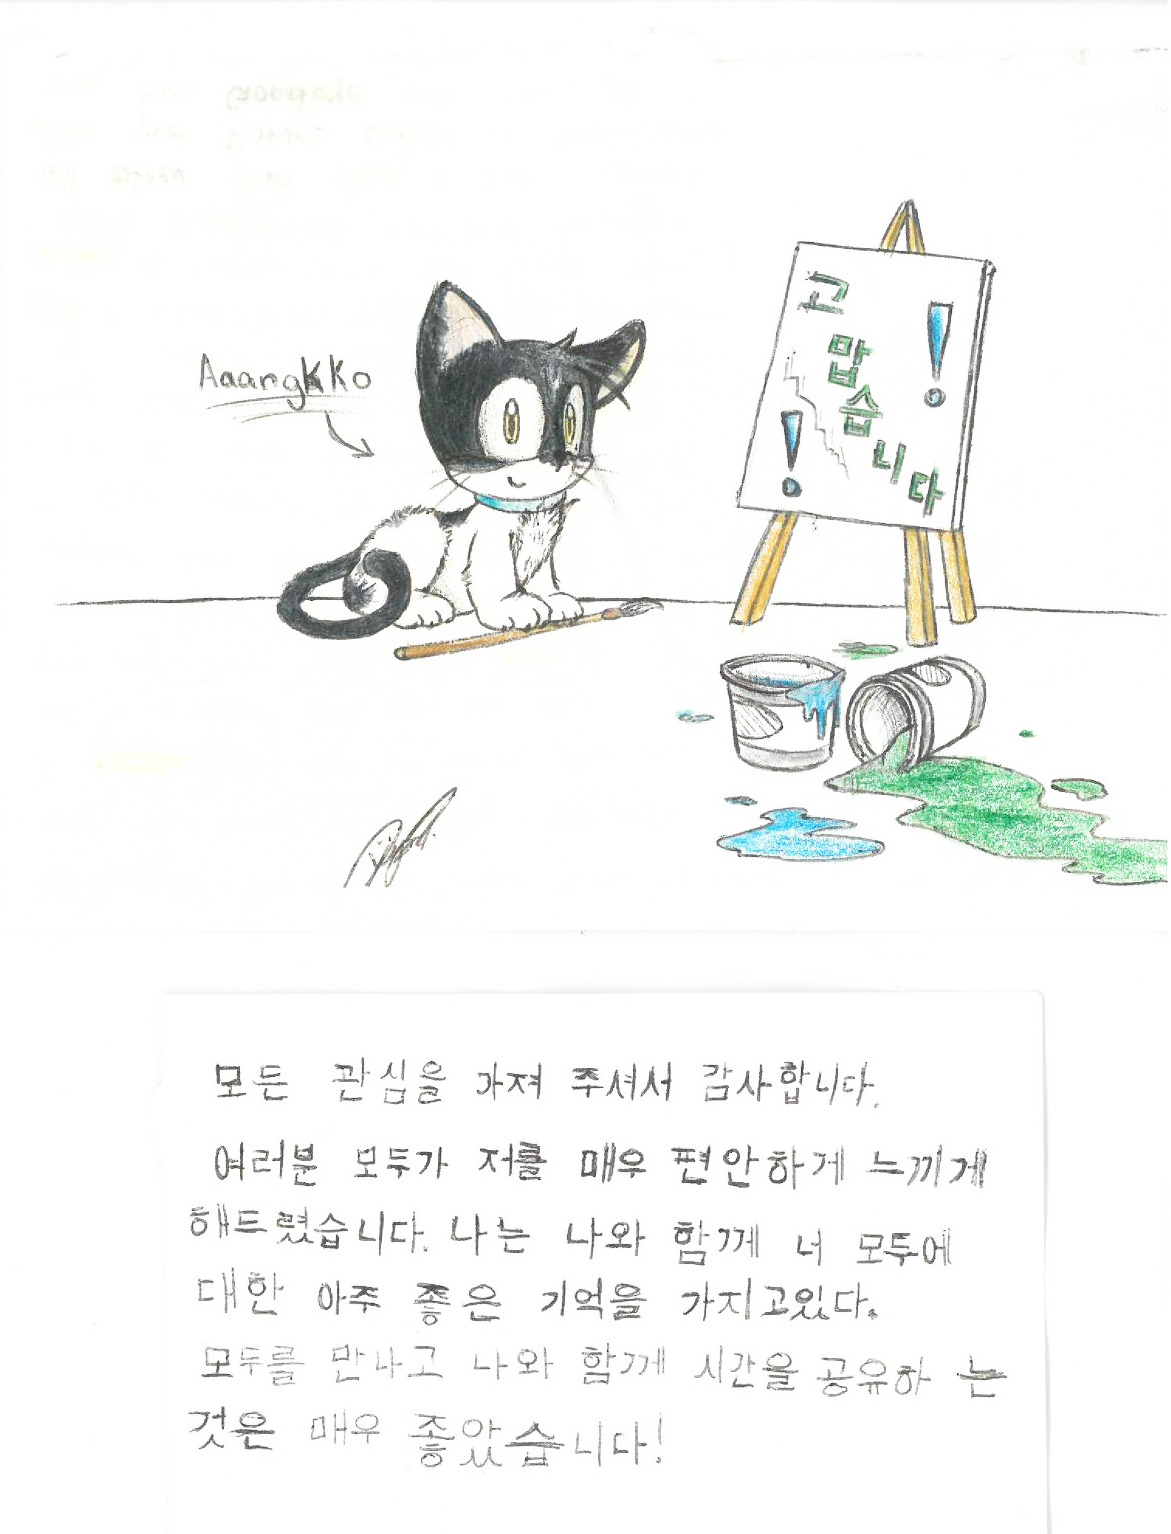 AaangKKo
고
맙
습
니
다
!
!
모든 관심을 가져 주셔서 감사합니다.
여러분 모두가 저를 매우 편안하게 느끼게
해드렸습니다. 나는 나와 함께 너 모두에
대한 아주 좋은 기억을 가지고있다.
모두를 만나고 나와 함께 시간을 공유하 는
것은 매우 좋았습니다!